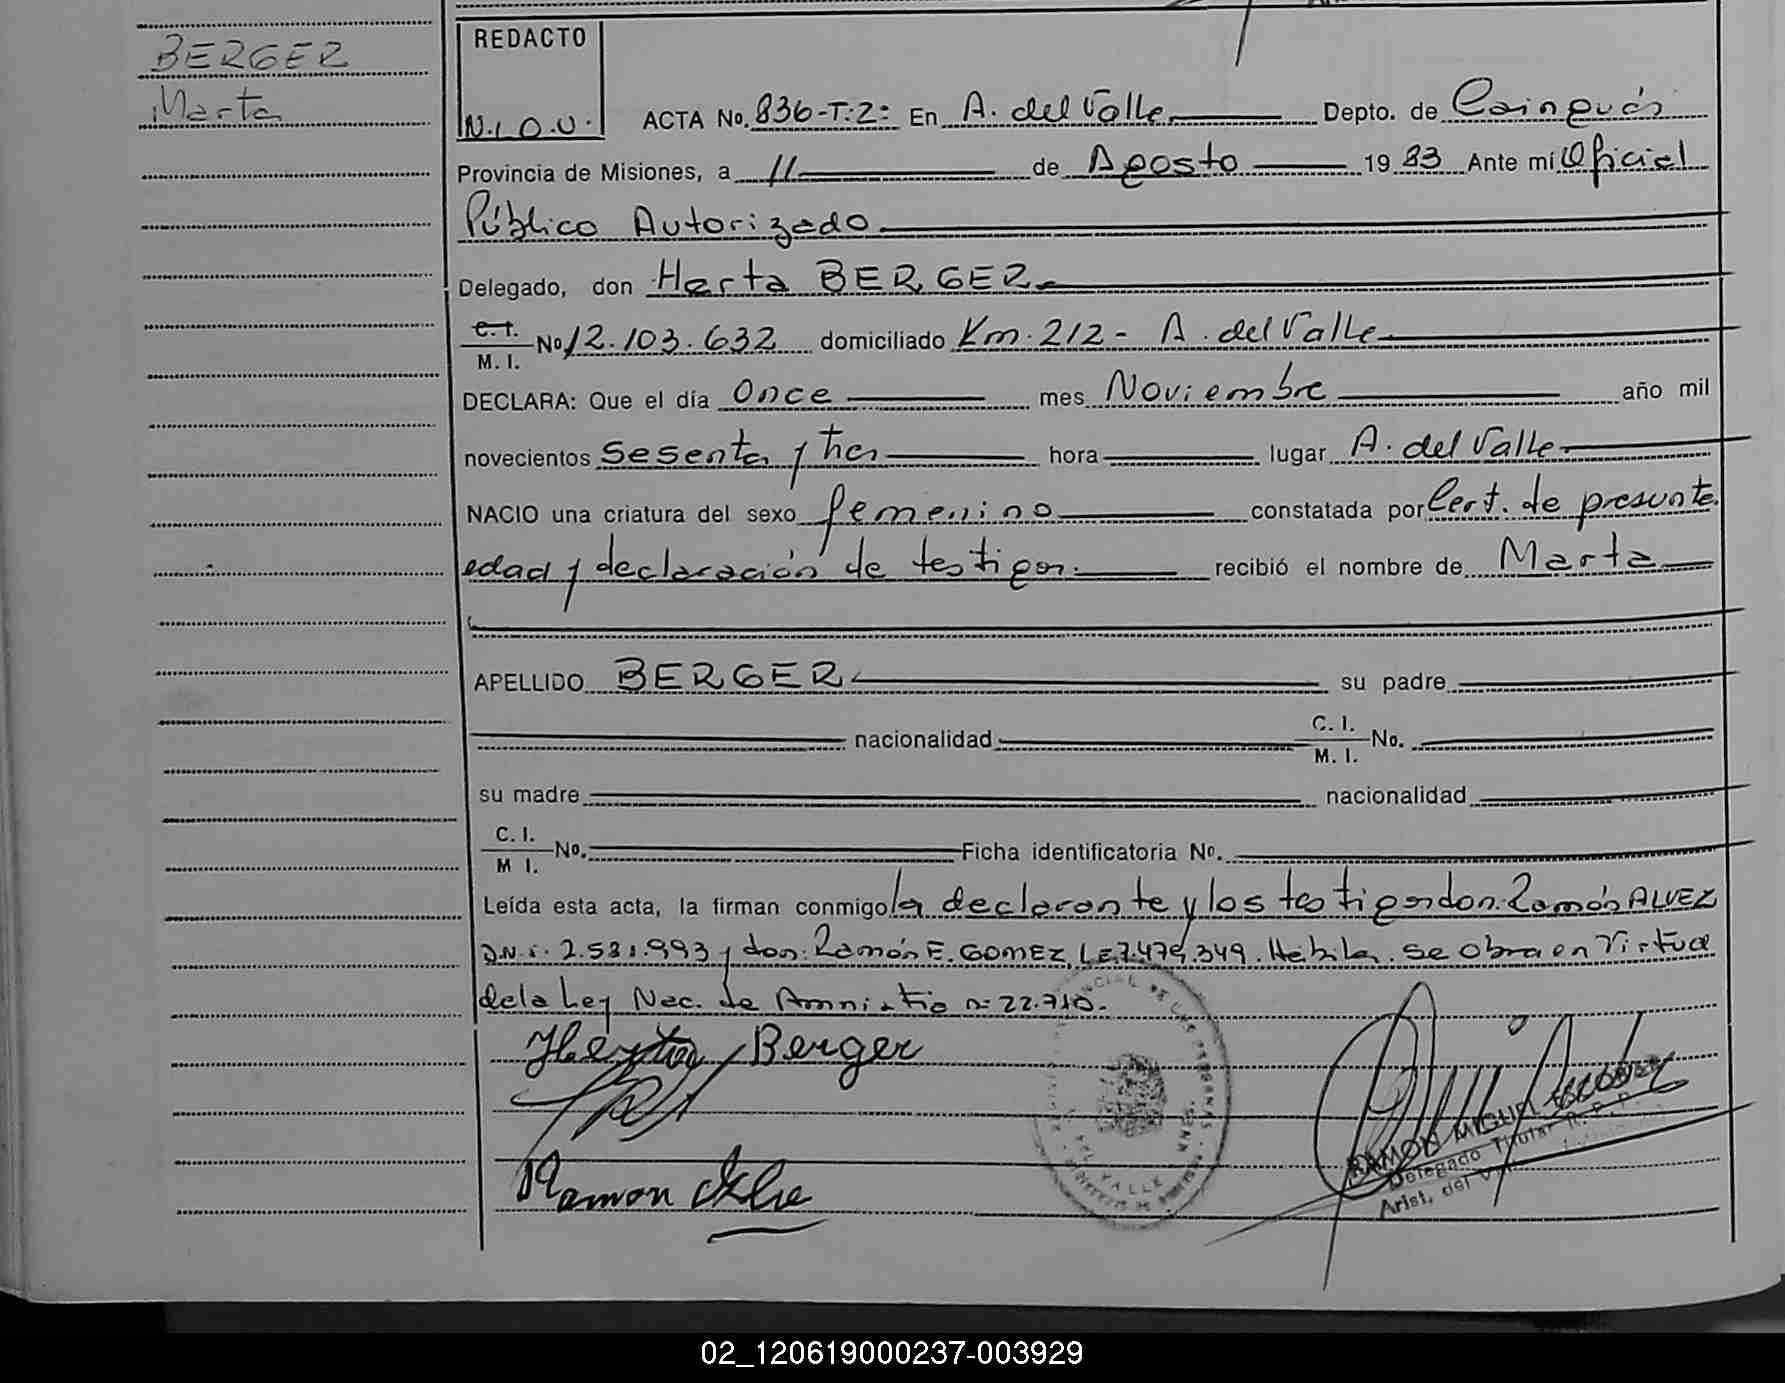 BERGER
Marta
REDACTO
N.I.O.U.
ACTA No. 836-T:2: En A. del Valle Depto. de Cainguás
Provincia de Misiones, a 11 de Agosto 1983 Ante mí Oficial
Público Autorizado
Delegado, don Herta BERGER.
C. I.
M. I. No 12.103.632 domiciliado Km. 212 - A. del Valle
DECLARA: Que el día Once mes Noviembre año mil
novecientos sesenta y tres hora lugar A. del Valle
NACIO una criatura del sexo femenino constatada por Cert. de presunta
edad y declaración de testigos. recibió el nombre de Marta
APELLIDO BERGER su padre
nacionalidad C. I.
M. I. No.
su madre nacionalidad
C. I.
M I. No. Ficha identificatoria No.
Leída esta acta, la firman conmigo la declarante y los testigos don: Ramón ALVEZ
D.N.I. 2.531.993 y don: Ramón E. GOMEZ, LE.7.479.349. Se obra en Virtud
de la Ley Nac. de Amnistia n: 22.710.-
Herta Berger
Ramon
RAMON MIGUEL ESCOBAR
Delegado Titular R. P. P.
Arist. del
02_120619000237-003929